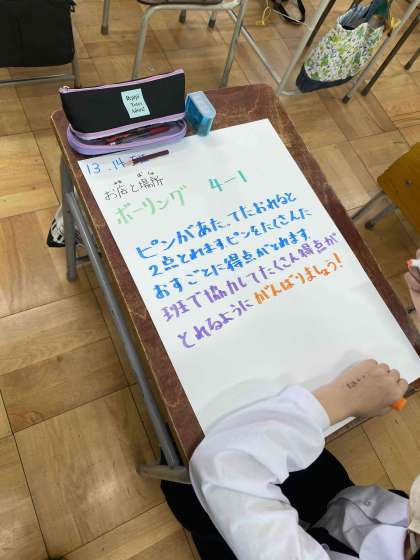 Happy
13.14
お店と場所
みせ ばしょ
ボーリング 4-1
ピンがあたってたおれると
2点とれますピンをたくさんた
おすごとに得点がとれます。
班で協力してたくさん得点が
とれるようにがんばりましょう!